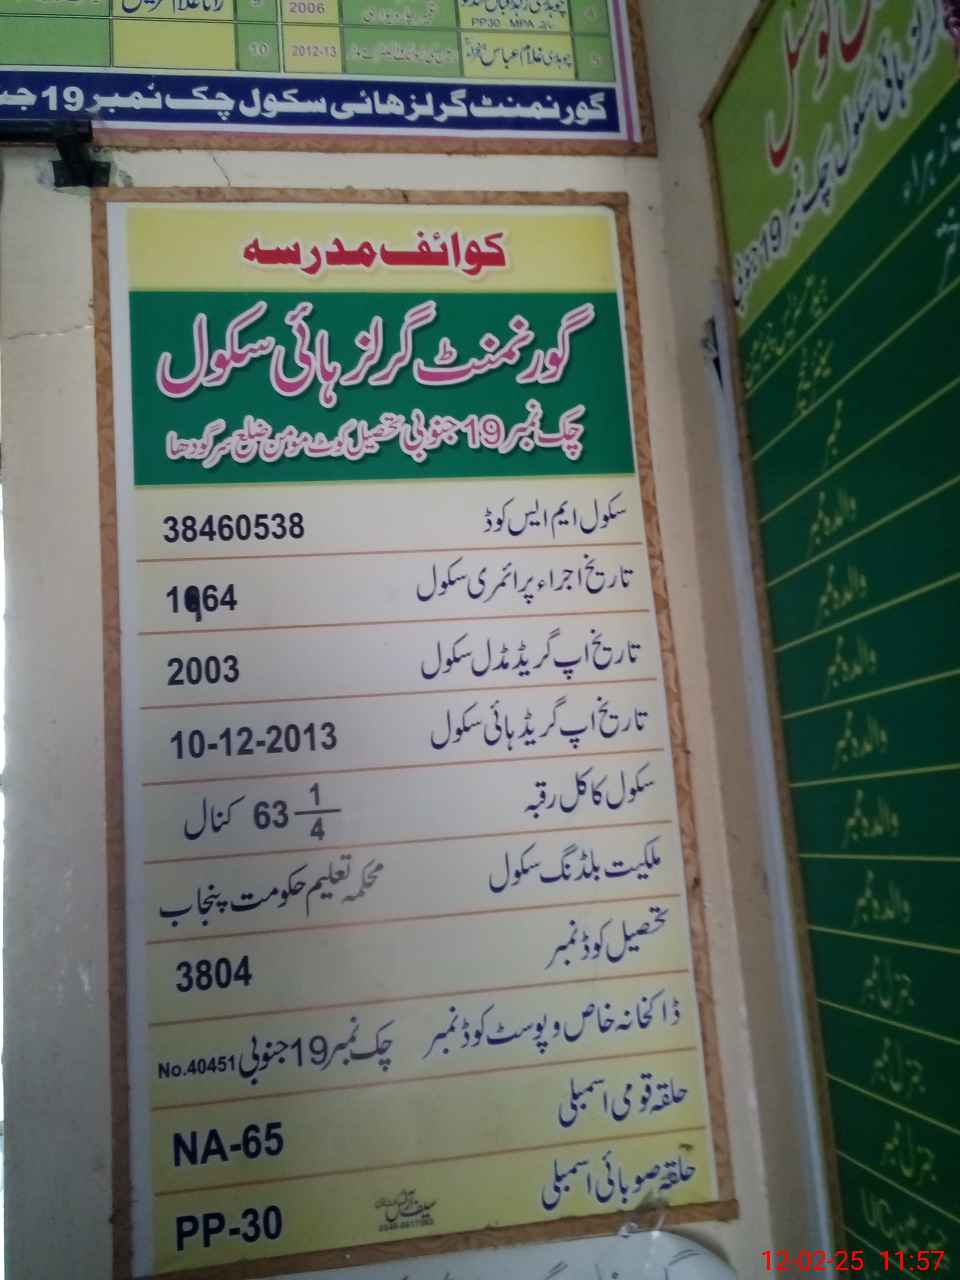 2006
PP30 - MPA
10
2012-13
چوہدری غلام عباس
گورنمنٹ گرلز ھائی سکول چک نمبر 19
کوائف مدرسہ
گورنمنٹ گرلز ہائی سکول
چک نمبر 19 جنوبی تحصیل کوٹ مومن ضلع سرگودھا
سکول ایم ایس کوڈ 38460538
تاریخ اجراء پرائمری سکول 1964
تاریخ اپ گریڈ مڈل سکول 2003
تاریخ اپ گریڈ ہائی سکول 10-12-2013
سکول کا کل رقبہ 63 1/4 کنال
ملکیت بلڈنگ سکول محکمہ تعلیم حکومت پنجاب
تحصیل کوڈ نمبر 3804
ڈاکخانہ خاص و پوسٹ کوڈ نمبر چک نمبر 19 جنوبی No.40451
حلقہ قومی اسمبلی NA-65
حلقہ صوبائی اسمبلی PP-30
ہائی سکول چک نمبر 19 جنوبی
والدہ ممبر
والدہ ممبر
والدہ ممبر
والدہ ممبر
والدہ ممبر
والدہ ممبر
جنرل ممبر
جنرل ممبر
جنرل ممبر
UC
12-02-25 11:57